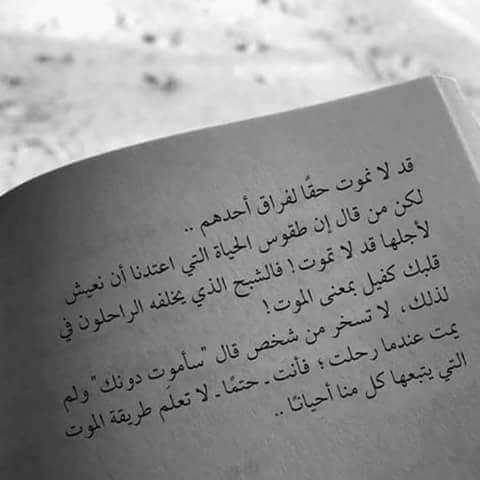 قد لا نموت حقًا لفراق أحدهم ..
لكن من قال إن طقوس الحياة التي اعتدنا أن نعيش
لأجلها قد لا تموت! فالشبح الذي يخلفه الراحلون في
قلبك كفيل بمعنى الموت!
لذلك، لا تسخر من شخص قال "سأموت دونك" ولم
يمت عندما رحلت؛ فأنت ـ حتمًا ـ لا تعلم طريقة الموت
التي يتبعها كل منا أحيانًا ..